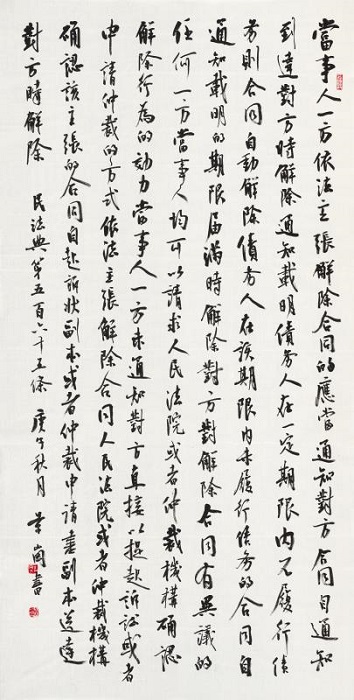 當事人一方依法主張解除合同的應當通知對方合同自通知
到達對方時解除通知載明債務人在一定期限內不履行債
務則合同自動解除債務人在該期限內未履行債務的合同自
通知載明的期限屆滿時解除對方對解除合同有異議的
任何一方當事人均可以請求人民法院或者仲裁機構確認
解除行為的効力當事人一方未通知對方直接以提起訴訟或者
申請仲裁的方式依法主張解除合同人民法院或者仲裁機構
確認該主張的合同自起訴狀副本或者仲裁申請書副本送達
對方時解除 民法典第五百六十五條 庚子秋月 書